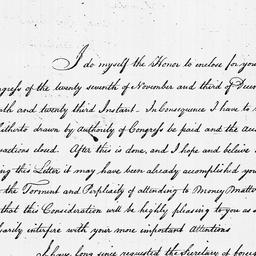 I do myself the Honor to enclose for you
ngress of the twenty seventh of November and third of Decem
nth and twenty third Instant. In Consequence I have to r
hitherto drawn by Authority of Congress be paid and the acc
sactions closd. After this is done, and I hope and beleive
ing this Letter it may have been already accomplished you
the Torment and Perplexity of attending to Money Matte
that this Consideration will be highly pleasing to you as
sarily interfere with your more important Attentions
I have long since requested the Secretary of Congress